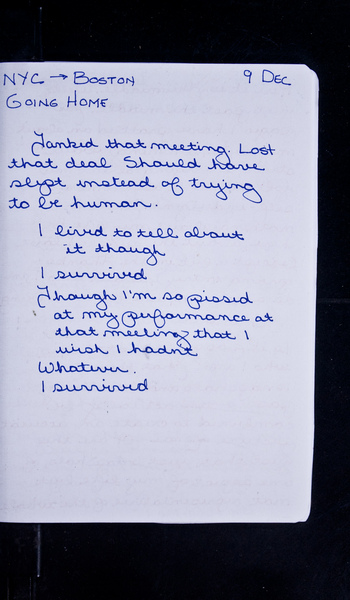 NYC → BOSTON 9 DEC
GOING HOME
Tanked that meeting. Lost
that deal Should have
slept instead of trying
to be human.
I lived to tell about
it though
I survived
Though I'm so pissed
at my performance at
that meeting that I
wish I hadn't
Whatever.
I survived